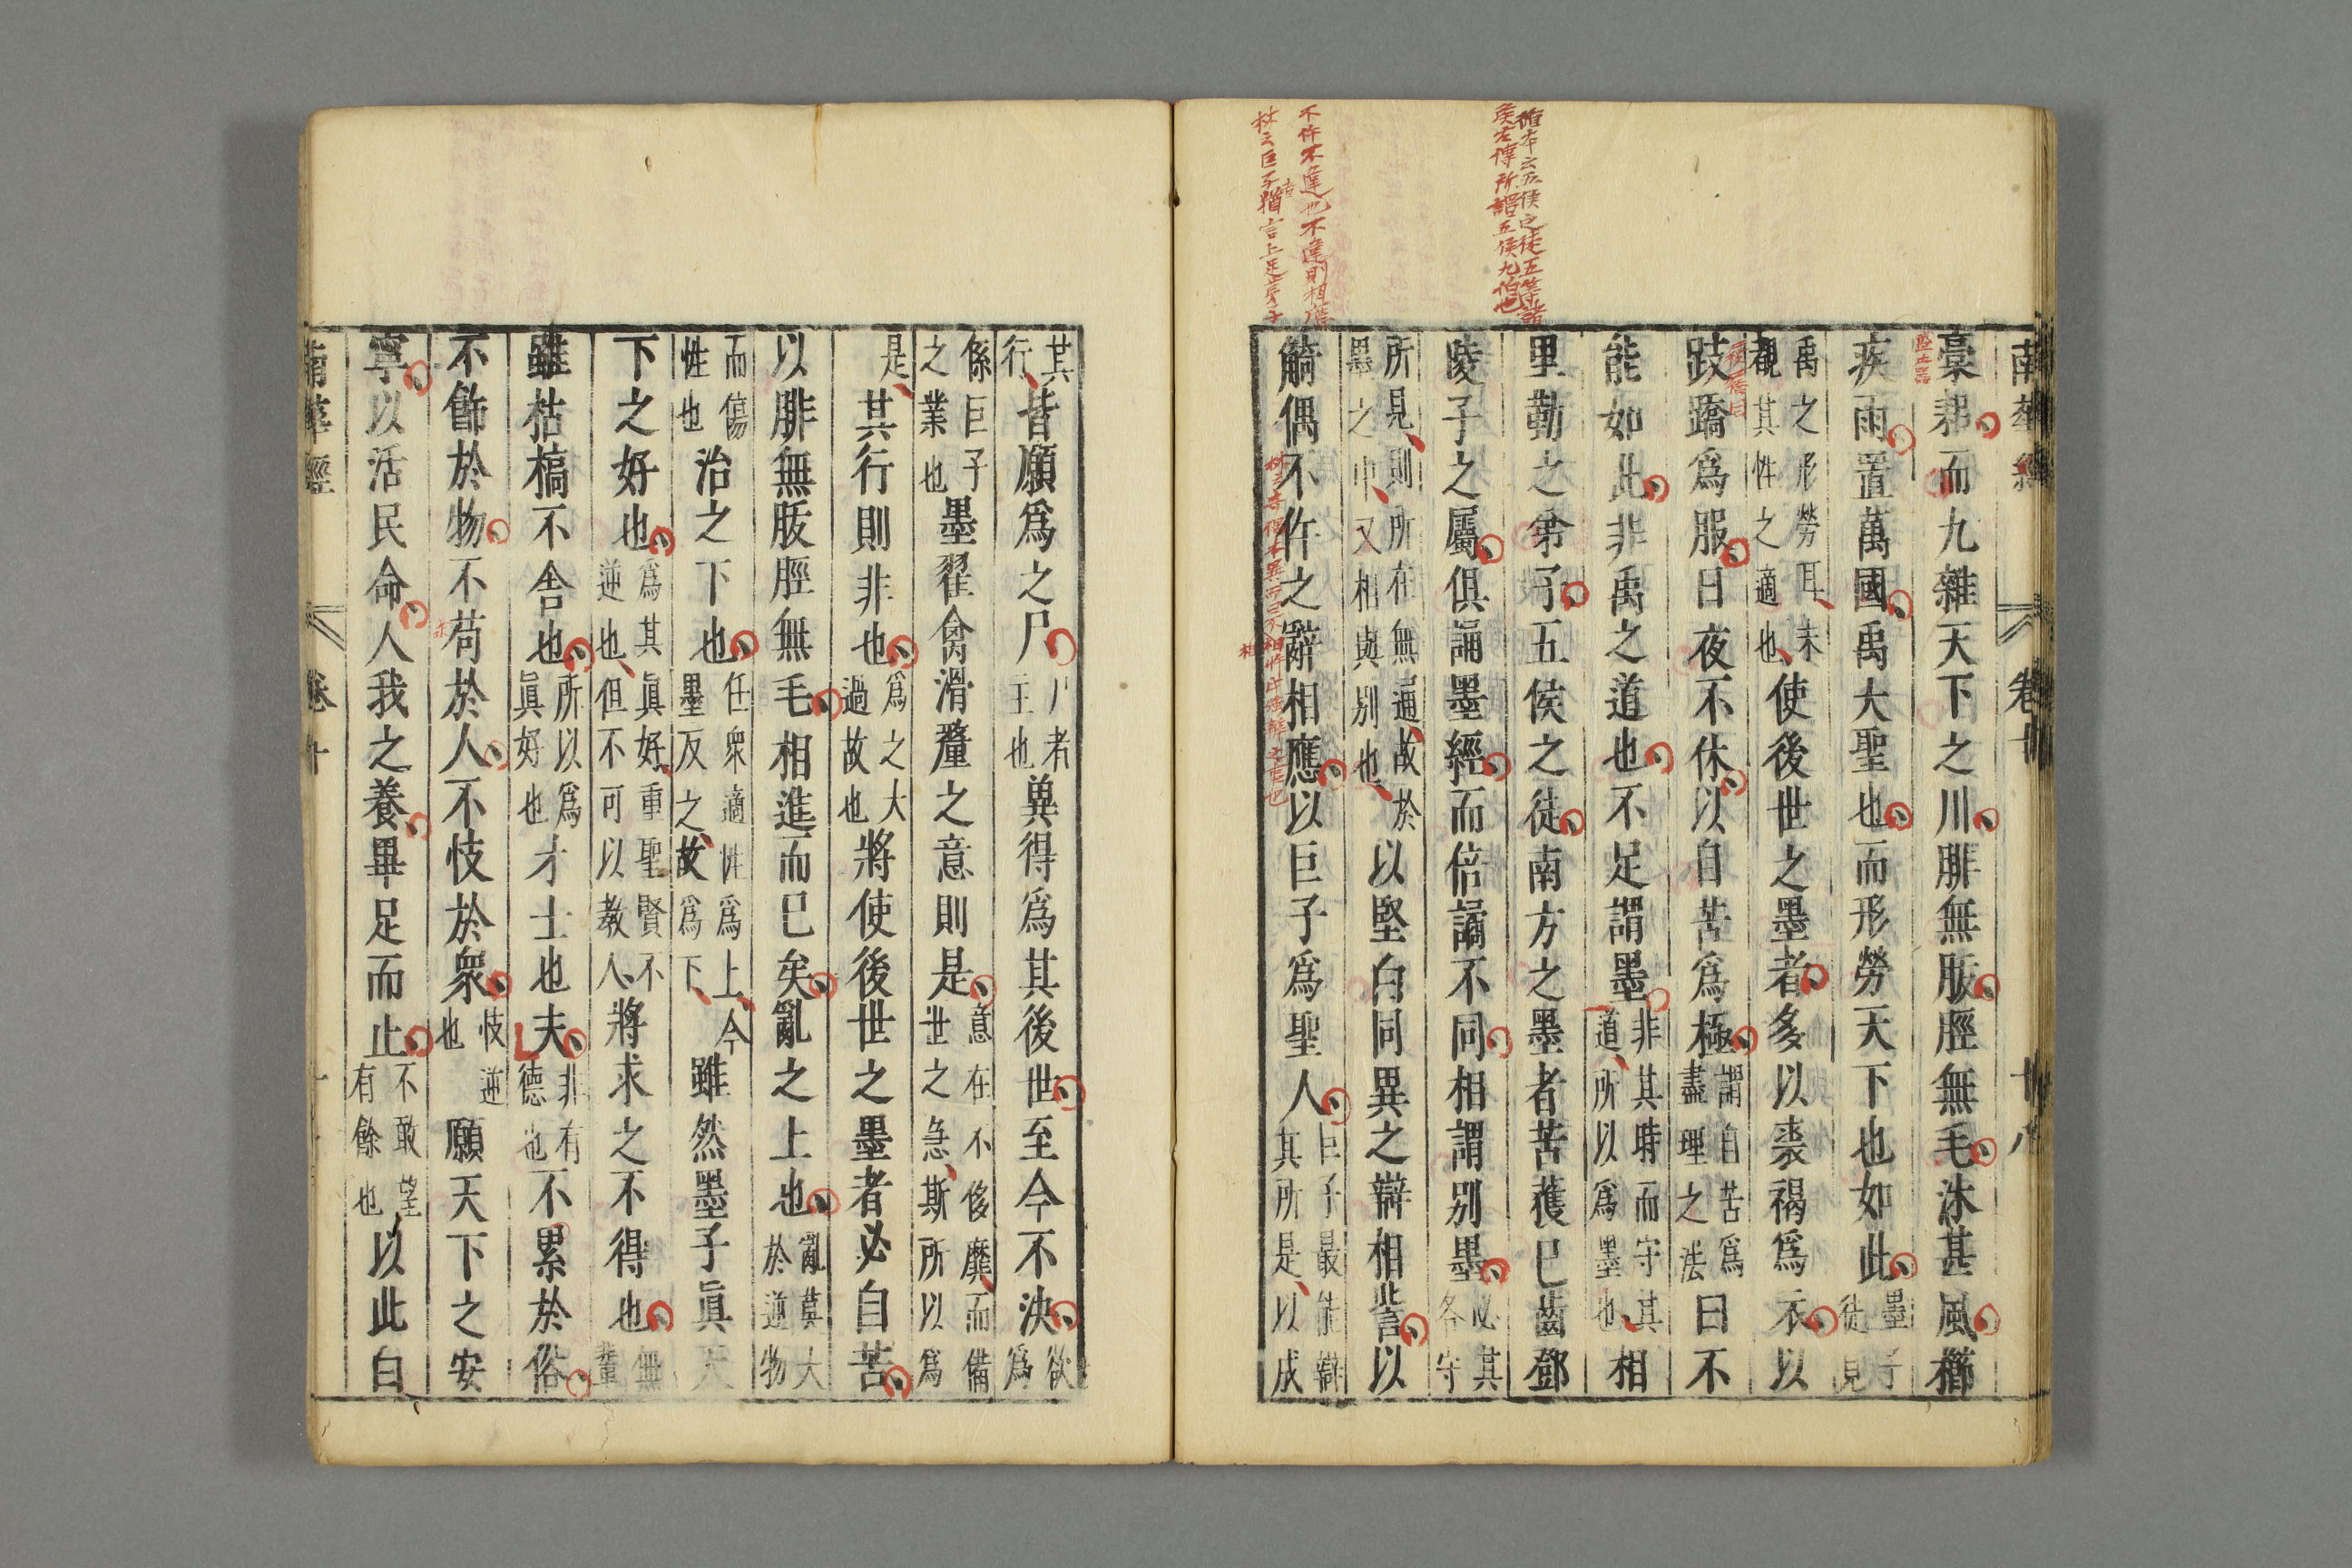 南華經
卷十
十八
槀耜而九雜天下之川腓無胈脛無毛沐甚風櫛
疾雨置萬國禹大聖也而形勞天下也如此墨子徒見
禹之形勞耳未觀其性之適也使後世之墨者多以裘褐爲衣以
跂蹻爲服日夜不休以自苦爲極謂自苦爲盡理之法曰不
能如此非禹之道也不足謂墨非其時而守其道所以爲墨也相
里勤之弟子五侯之徒南方之墨者苦獲已齒鄧
陵子之屬俱誦墨經而倍譎不同相謂別墨必其各守
所見則所在無通故於墨之中又相與別也以堅白同異之辯相訾以
觭偶不仵之辭相應以巨子爲聖人巨子最能辯其所是以成
其行皆願爲之尸尸者主也兾得爲其後世至今不決欲爲
係巨子之業也墨翟禽滑釐之意則是意在不侈靡而備世之急斯所以爲
是其行則非也爲之大過故也將使後世之墨者必自苦
以腓無胈脛無毛相進而已矣亂之上也亂莫大於逆物
而傷性也治之下也任衆適性爲上今墨反之故爲下雖然墨子眞天
下之好也爲其眞好重聖賢不逆也但不可以教人將求之不得也無輩
雖枯槁不舎也所以爲眞好也才士也夫非有德也不累於俗
不飾於物不苟於人不忮於衆忮逆也願天下之安
寧以活民命人我之養畢足而止不敢望有餘也以此白
南華經
卷十
循本云五侯之徒五等諸
侯左傳所謂五侯九伯也
不仵不違也不違則相應
林云巨子猶言上足弟子